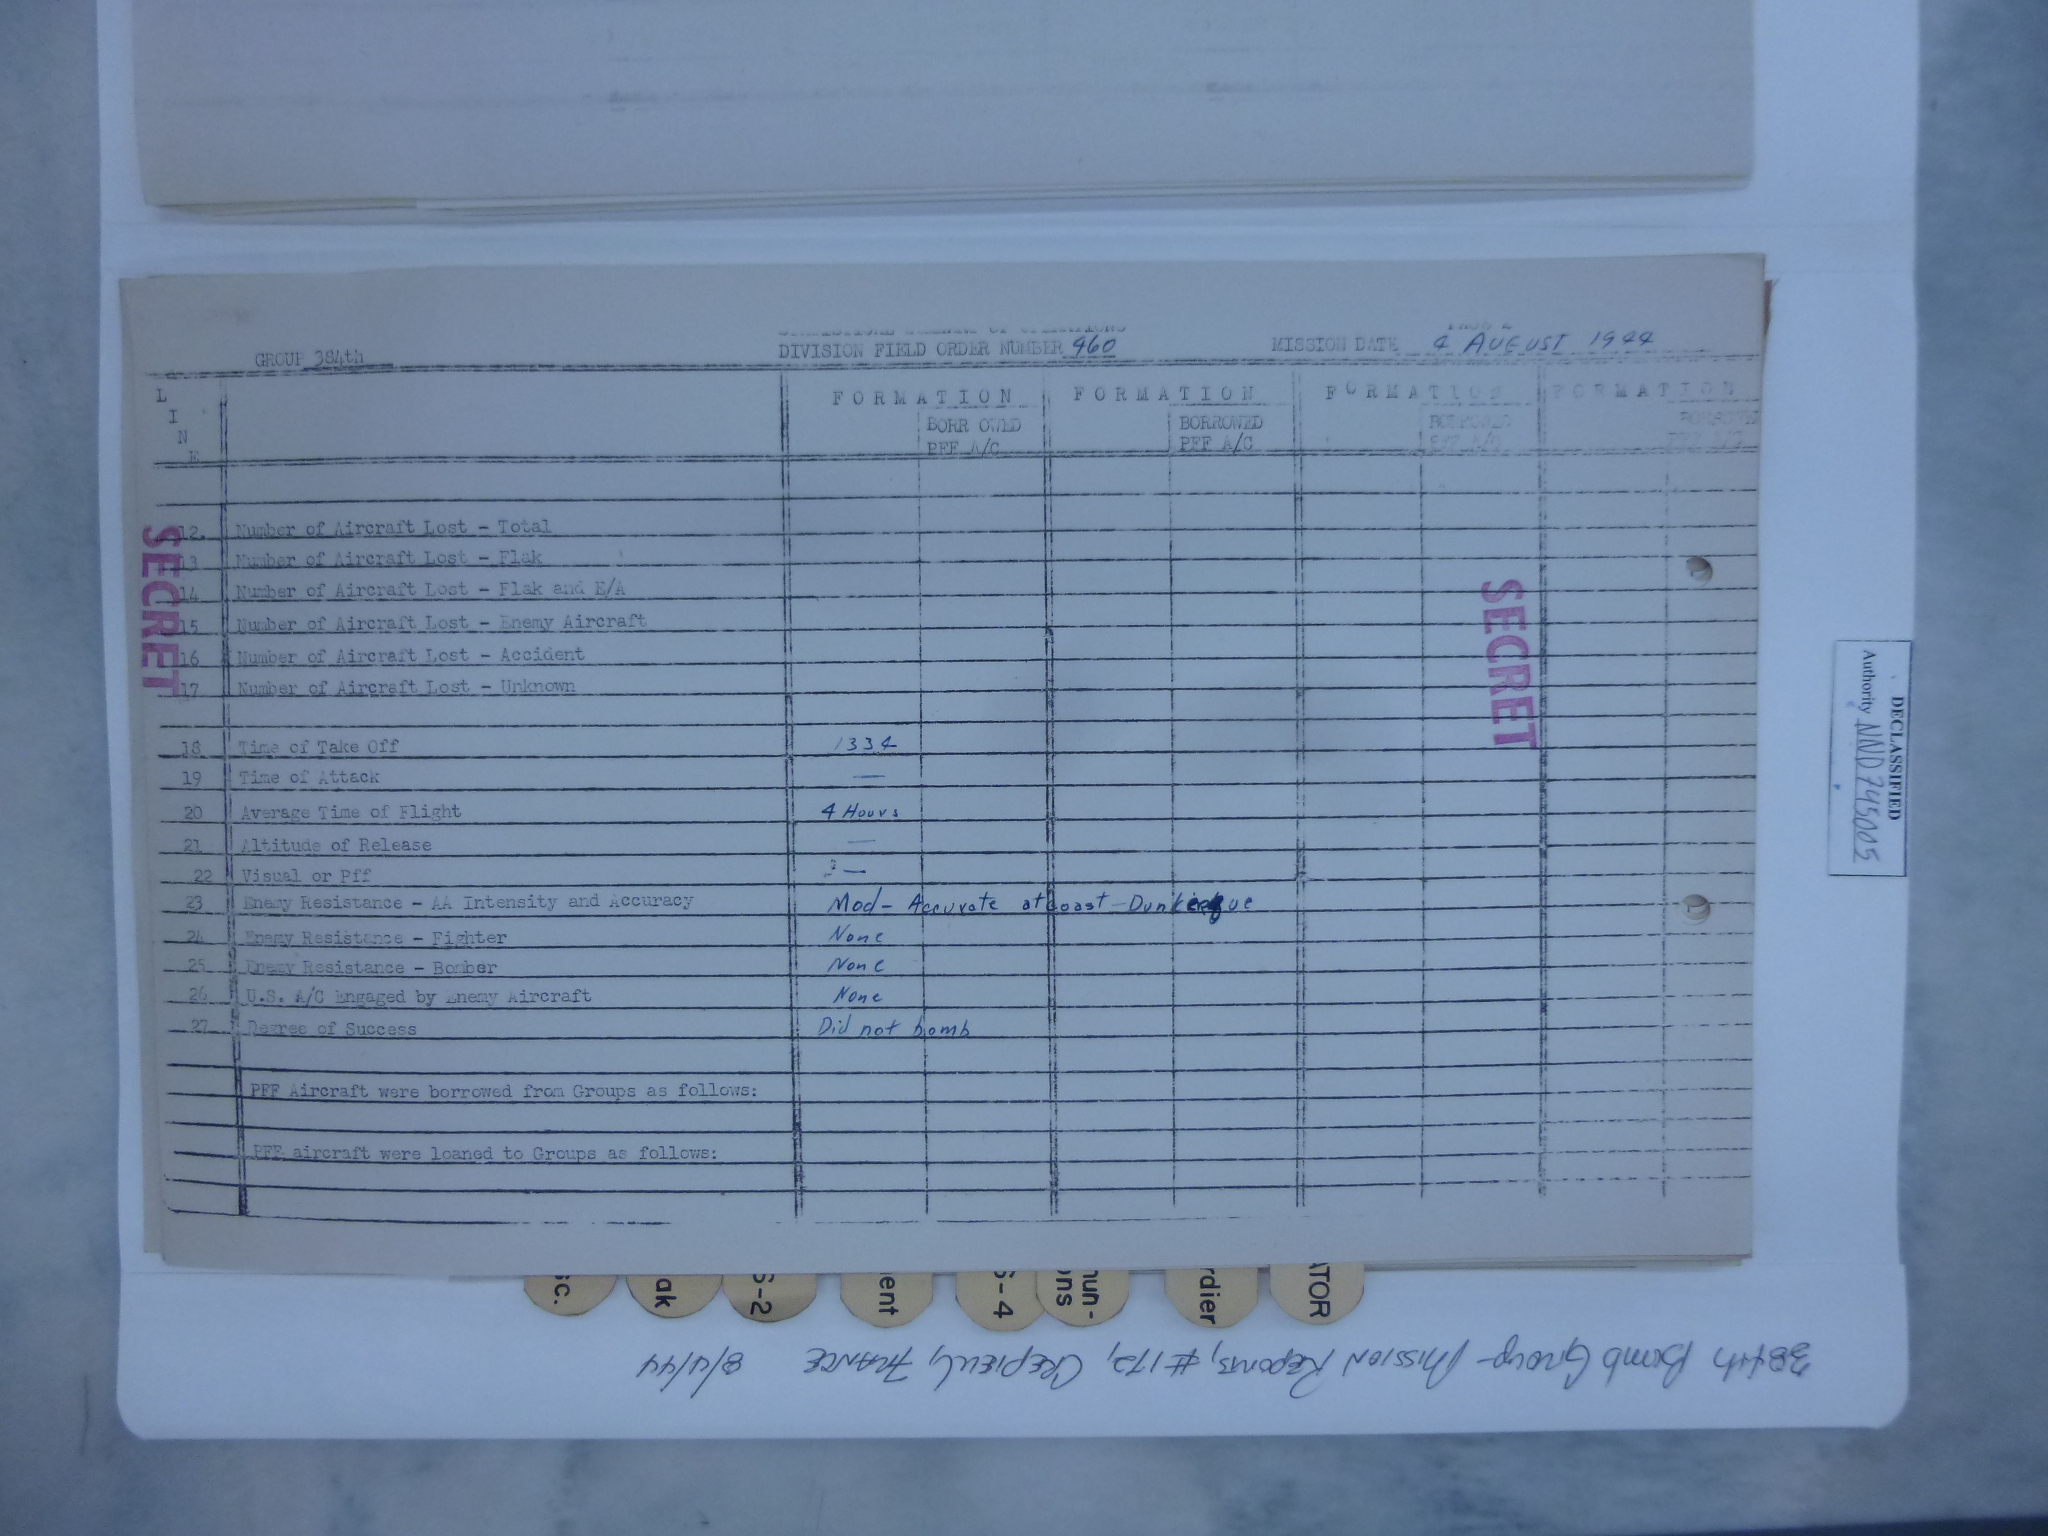 PAGE 2
STATISTICAL SUMMARY OF OPERATIONS
GROUP 384th DIVISION FIELD ORDER NUMBER 460 MISSION DATE 4 AUGUST 1944
LINE
FORMATION FORMATION FORMATION FORMATION
BORROWED PFF A/C BORROWED PFF A/C BORROWED PFF A/C BORROWED PFF A/C
12. Number of Aircraft Lost - Total
13 Number of Aircraft Lost - Flak
14 Number of Aircraft Lost - Flak and E/A
15 Number of Aircraft Lost - Enemy Aircraft
16 Number of Aircraft Lost - Accident
17 Number of Aircraft Lost - Unknown
18 Time of Take Off 1334
19 Time of Attack —
20 Average Time of Flight 4 Hours
21 Altitude of Release —
22 Visual or Pff —
23 Enemy Resistance - AA Intensity and Accuracy Mod - Accurate at Coast - Dunkerque
24 Enemy Resistance - Fighter None
25 Enemy Resistance - Bomber None
26 U.S. A/C Engaged by Enemy Aircraft None
27 Degree of Success Did not bomb
PFF Aircraft were borrowed from Groups as follows:
PFF aircraft were loaned to Groups as follows:
SECRET
SECRET
DECLASSIFIED
Authority NND 745005
sc.
ak
S-2
ent
S-4
mun-
ons
rdier
ATOR
384th Bomb Group - Mission Reports, #172, CREPIEUL, FRANCE 8/4/44